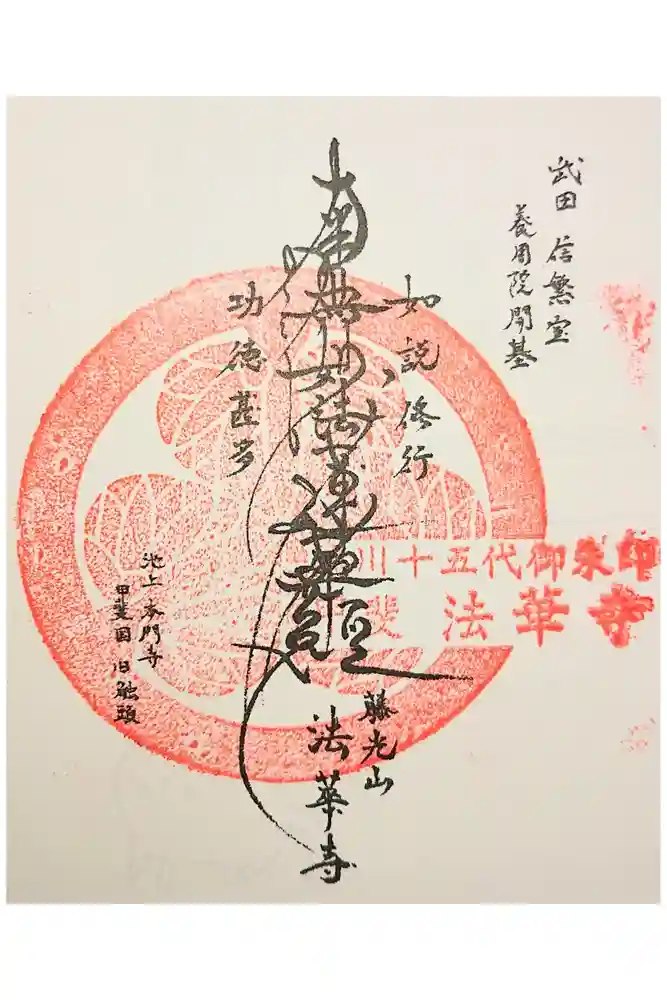 武田信繁室
養周院開基
如説修行
南無妙法蓮華経
功徳甚多
池上本門寺
甲斐国旧触頭
藤光山
法華寺
川十五代御朱印
斐 法華寺